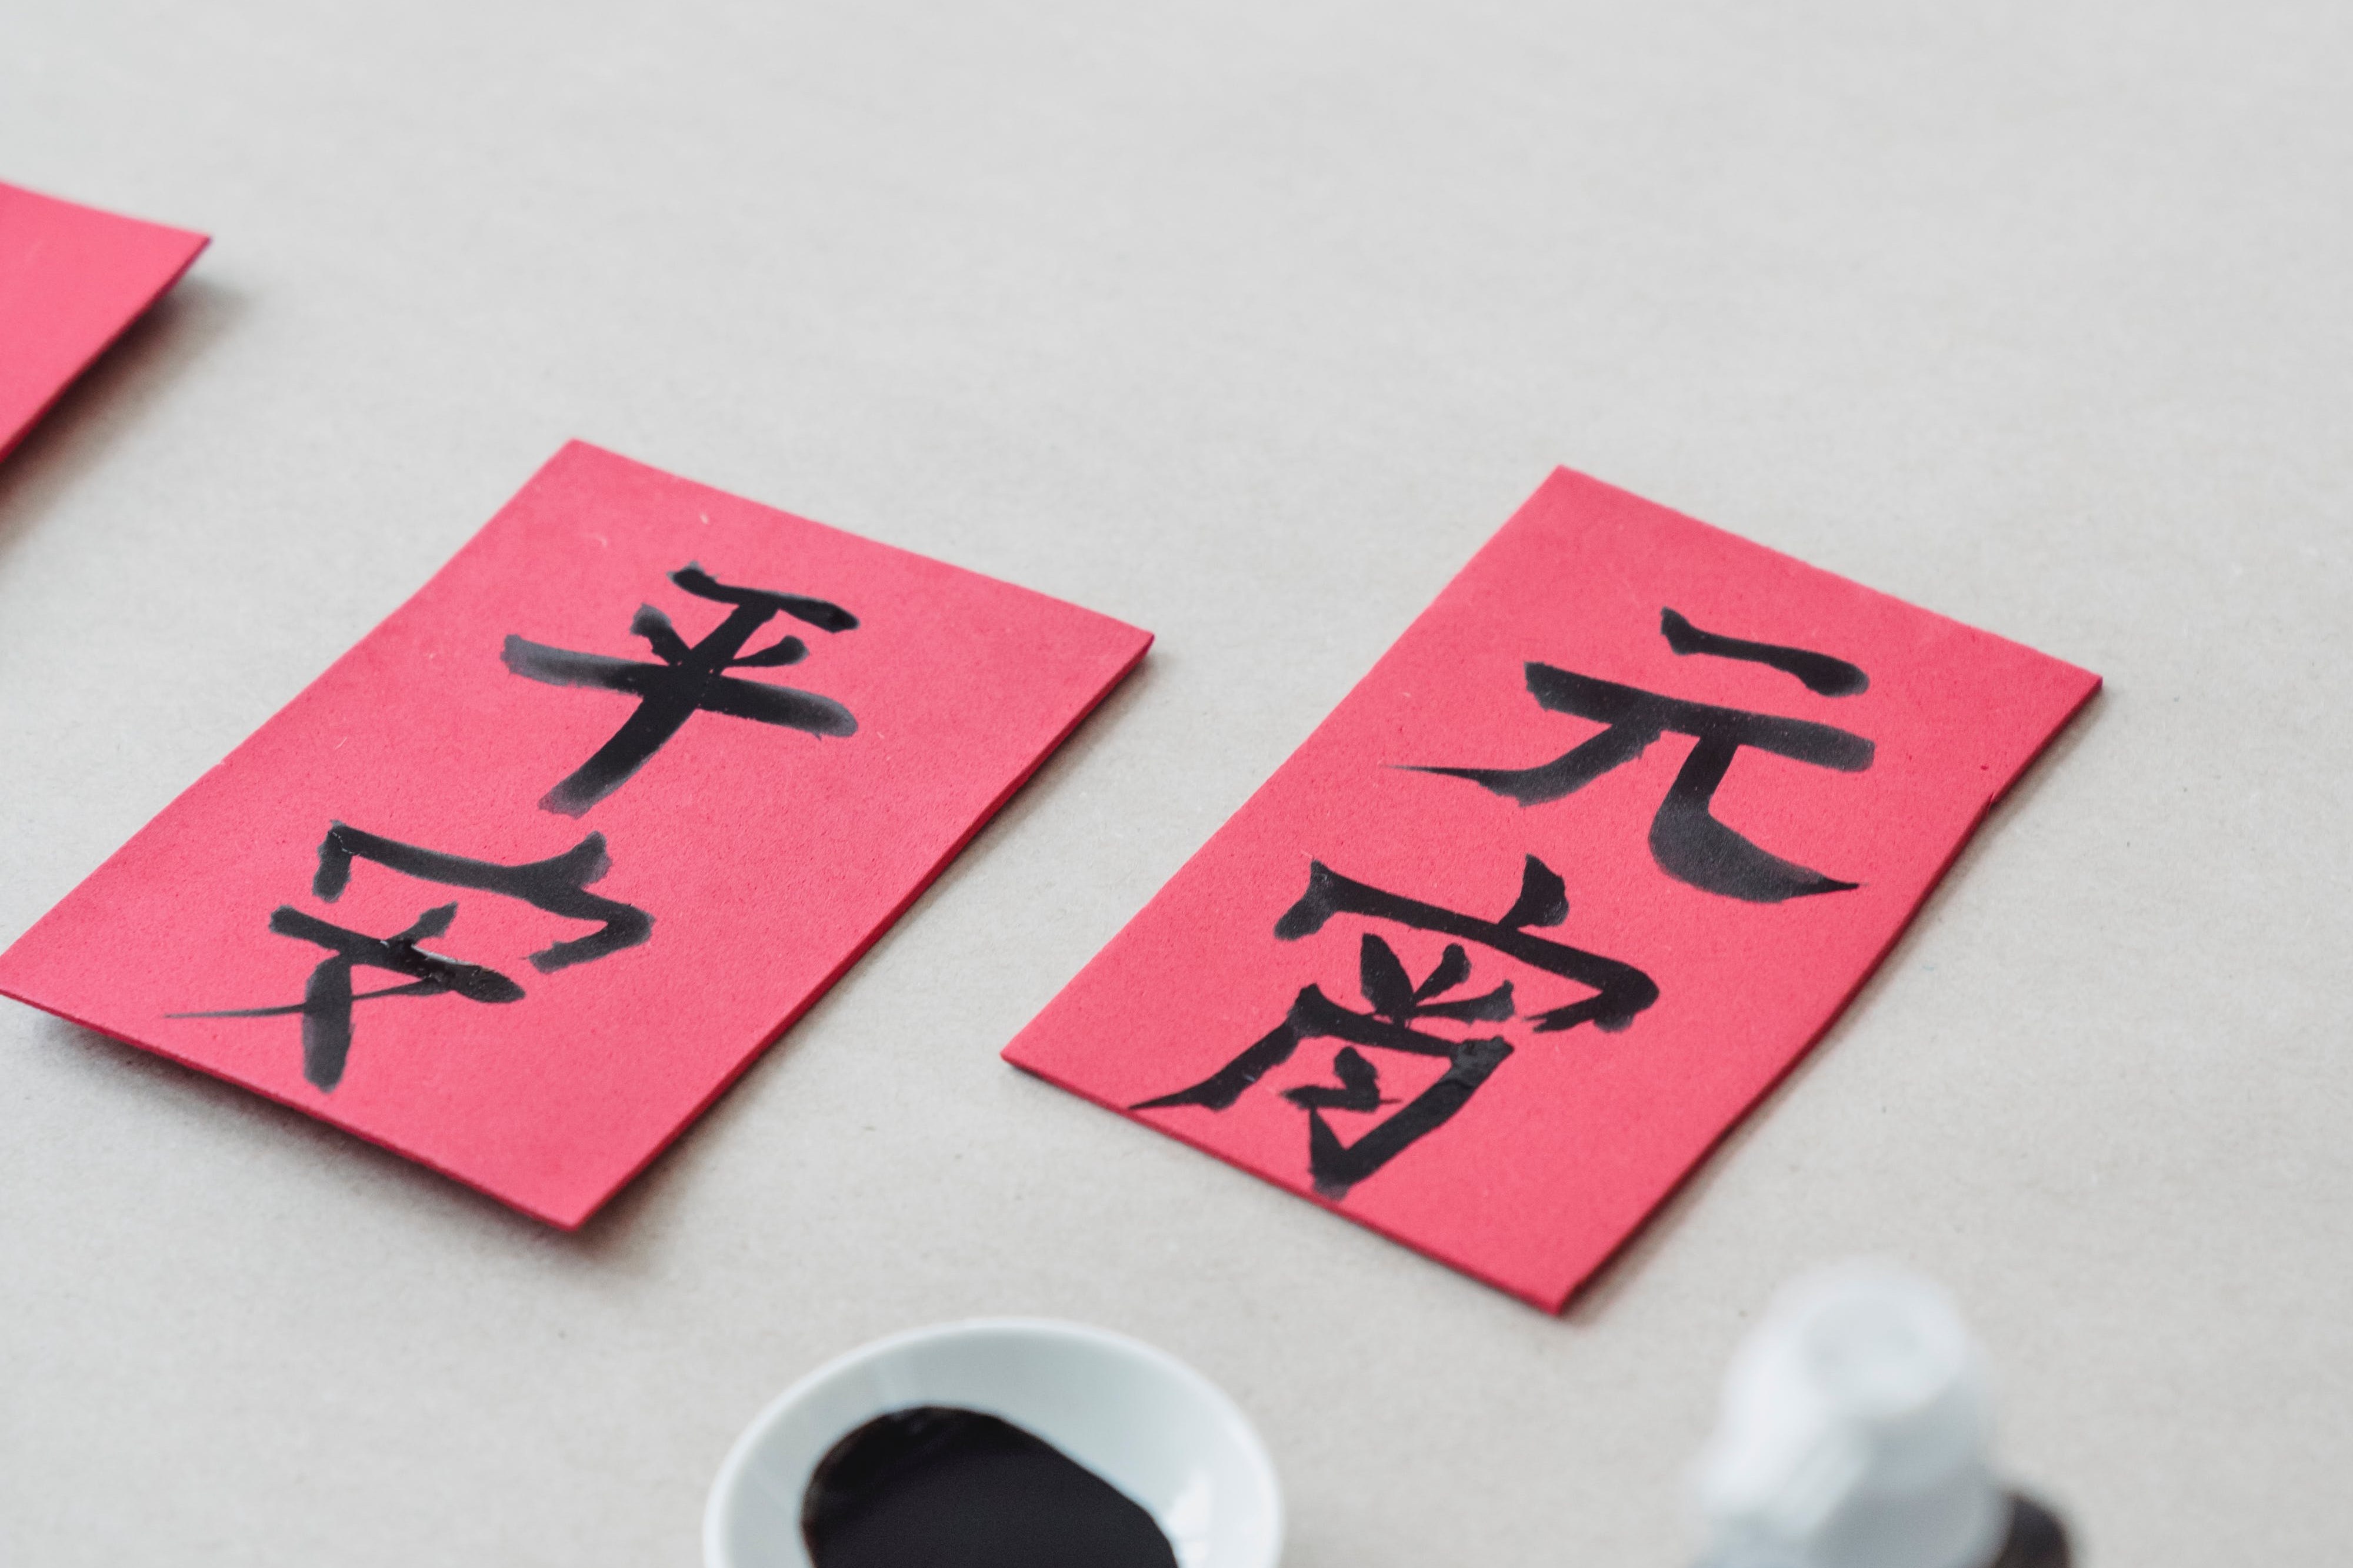 平安
元宵